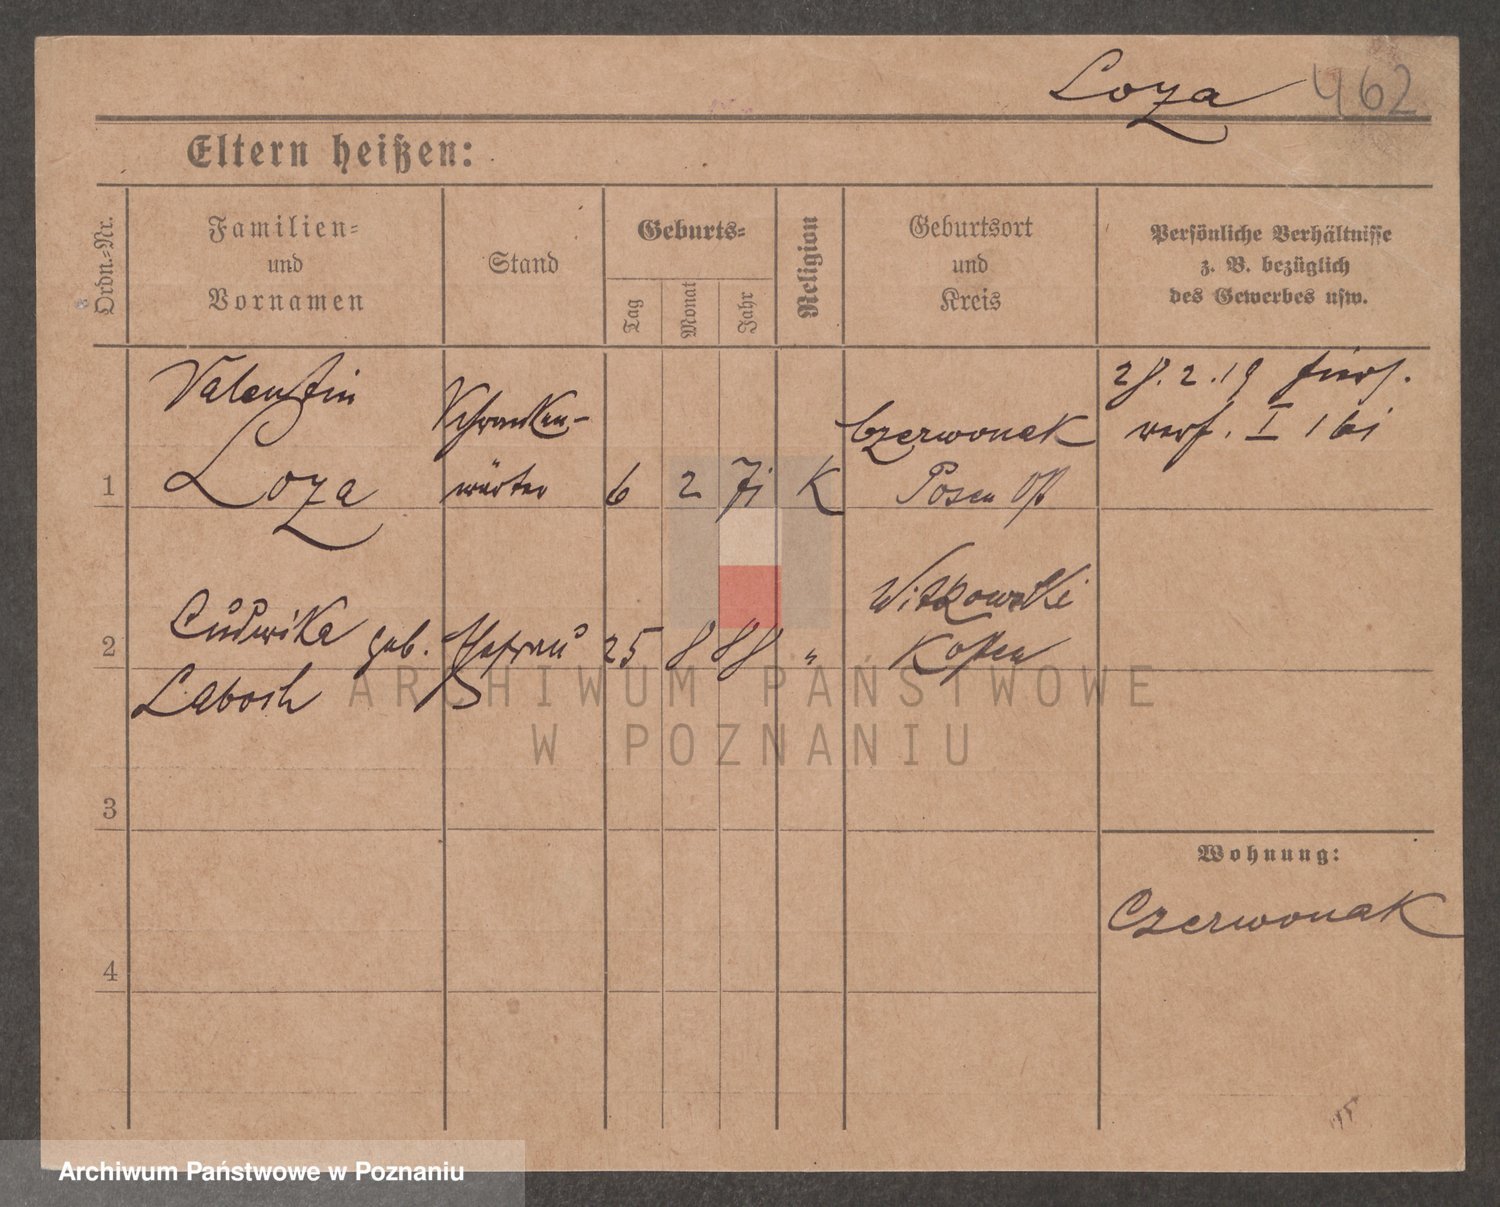 Loza 462
Eltern heißen:
Ordn.-Nr.
Familien-
und
Vornamen
Stand
Geburts-
Tag
Monat
Jahr
Religion
Geburtsort
und
Kreis
Persönliche Verhältnisse
z. B. bezüglich
des Gewerbes usw.
1
Valentin
Loza
Schranken-
wärter
6
2
K
Czerwonak
Posen Ost
28.2.19 hierf.
verz. I
2
Ludwika geb.
Labosh
Ehefrau
25
8
88
"
Witkowski
Kosten
3
4
Wohnung:
Czerwonak
ARCHIWUM PAŃSTWOWE
W POZNANIU
Archiwum Państwowe w Poznaniu